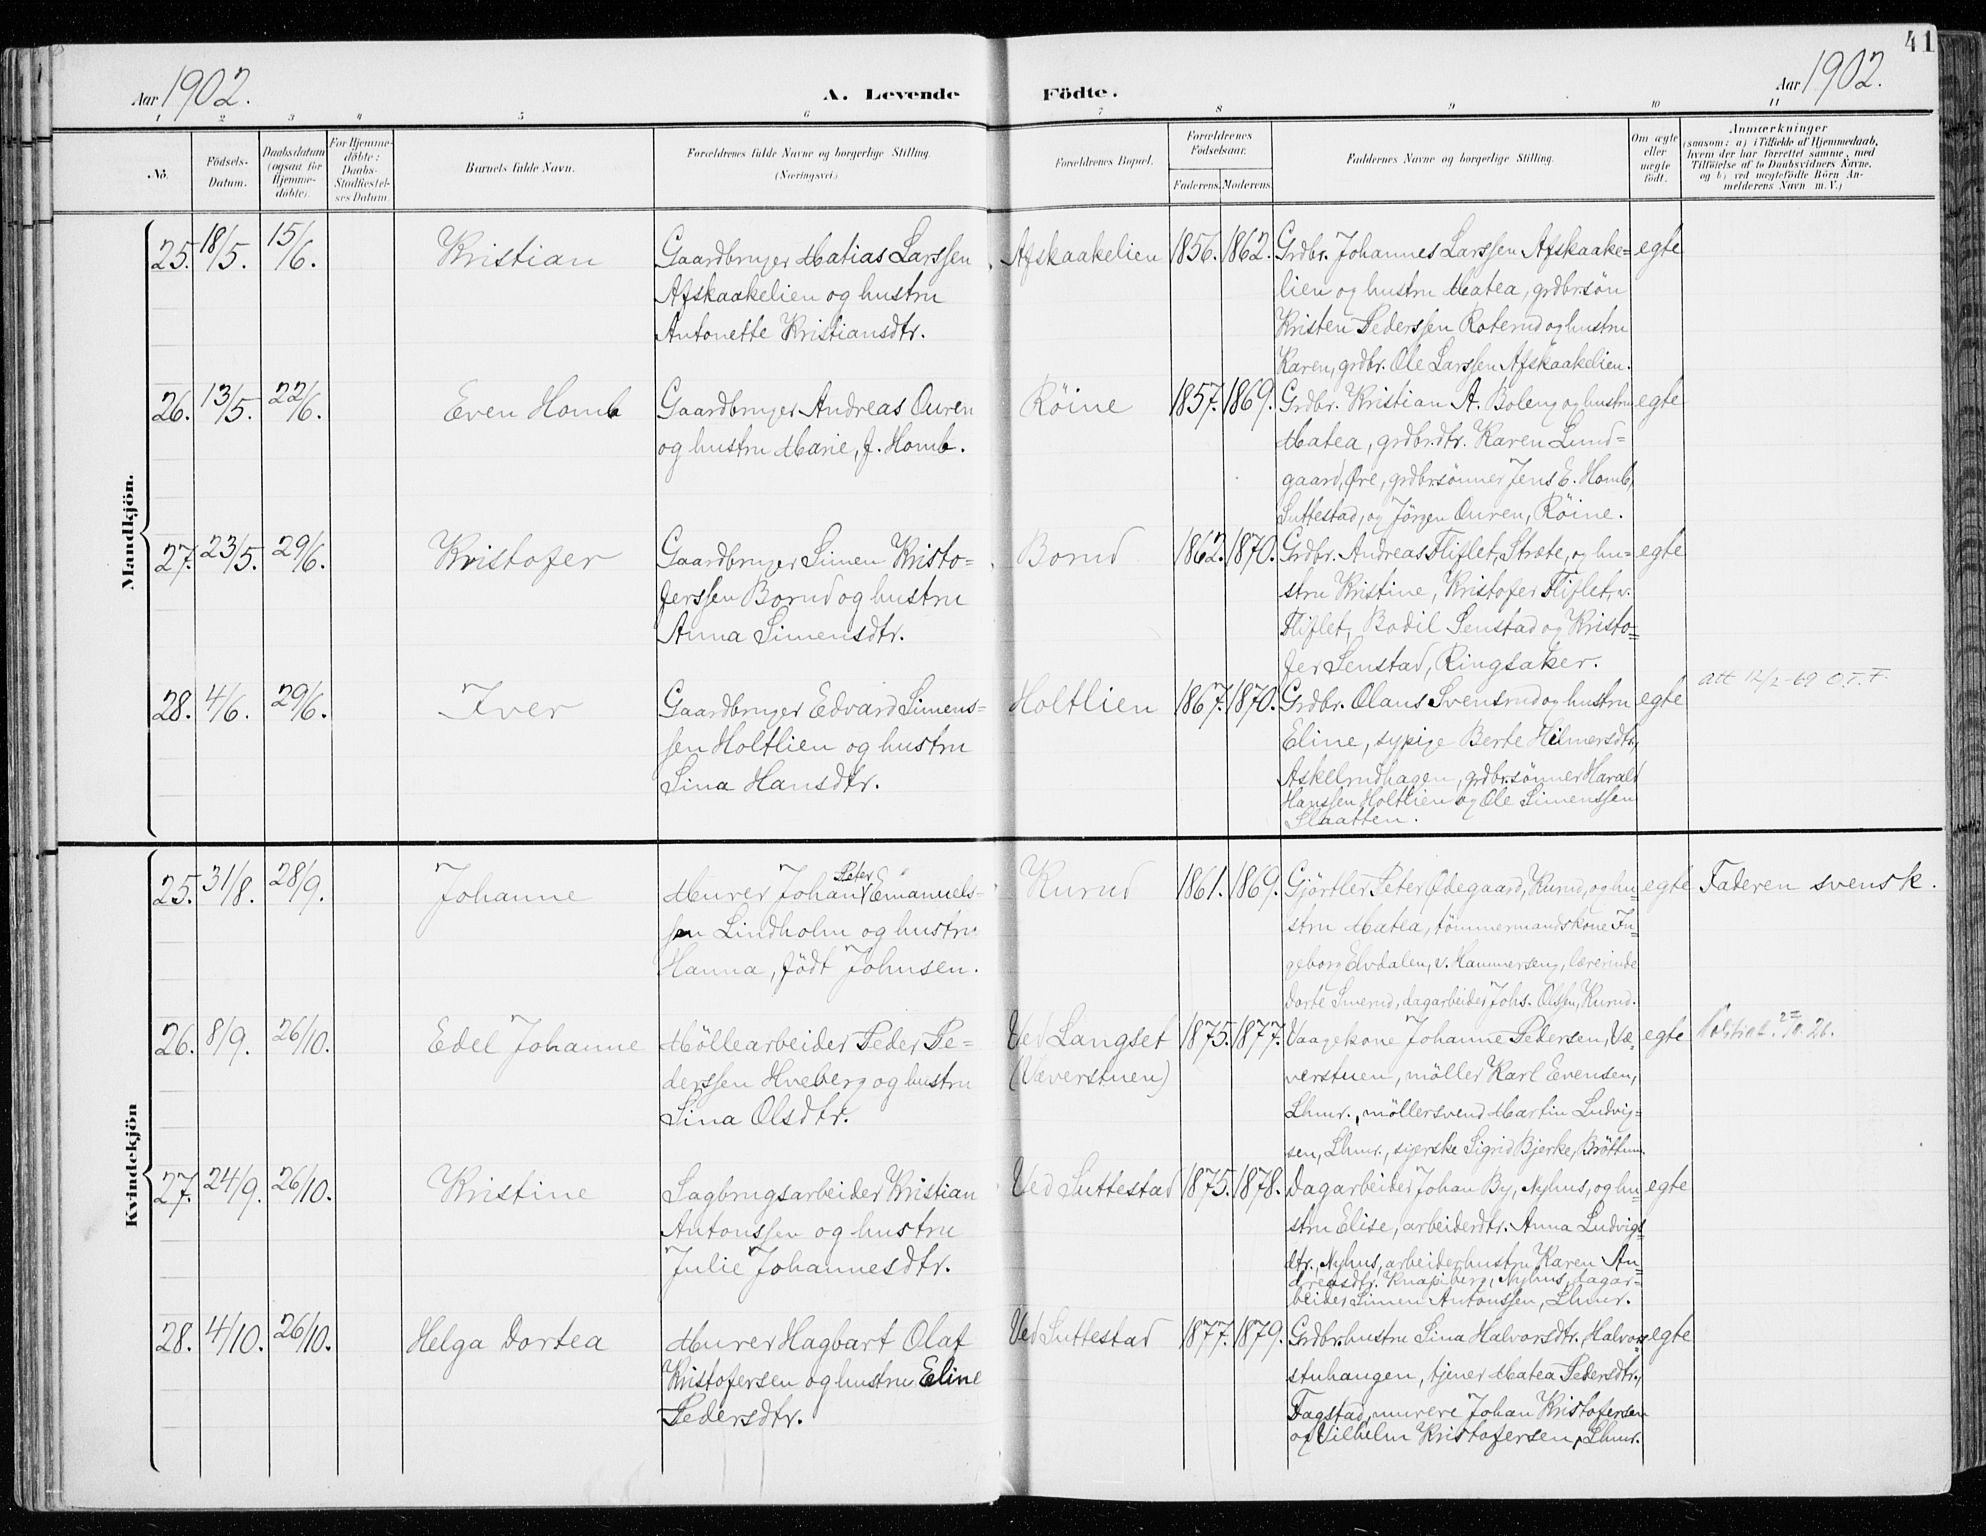 41
Aar 1902.
A. Levende Födte.
Aar 1902.
1 2 3 4 5 6 7 8 9 10 11
No.
Födsels-
Datum.
Daabsdatum
(ogsaa for
Hjemme-
döbte).
For Hjemme-
döbte:
Daabs-
Stadfæstel-
ses Datum.
Barnets fulde Navn.
Forældrenes fulde Navne og borgerlige Stilling.
(Næringsvei.)
Forældrenes Bopæl.
Forældrenes
Födselsaar.
Faderens. Moderens.
Faddernes Navne og borgerlige Stilling.
Om ægte
eller
uægte
födt.
Anmærkninger
(saasom: a) i Tilfælde af Hjemmedaab,
hvem der har forrettet samme, med
Tilföielse af to Daabsvidners Navne,
og b) ved uægtefödte Börn An-
melderens Navn m. V.)
Mandkjön.
25. 18/5. 15/6. Kristian
Gaardbruger Matias Larssen
Afskaakelien og hustru
Antonette Kristiansdtr.
Afskaakelien 1856. 1862.
Grdbr. Johannes Larssen Afskaake=
lien og hustru Matea, grdbr.søn
Kristen Pederssen Roterud og hustru
Karen, grdbr. Ole Larssen Afskaakelien.
egte
26. 13/5. 22/6. Even Homb
Gaardbruger Andreas Ouren
og hustru Marie, f. Homb.
Røine 1857. 1869.
Grdbr. Kristian A. Boleng og hustru
Matea, grdbr.dtr. Karen Lund=
gaard, Øre, grdbr.sønner Jens E. Homb,
Suttestad, og Jörgen Ouren, Røine.
egte
27. 23/5. 29/6. Kristofer
Gaardbruger Simen Kristo=
ferssen Borud og hustru
Anna Simensdtr.
Borud 1862. 1870.
Grdbr. Andreas Fliflet, Stræte, og hu=
stru Kristine, Kristofer Fliflet, v.
Fliflet, Bodil Senstad og Kristo=
fer Senstad, Ringsaker.
egte
28. 4/6. 29/6. Iver
Gaardbruger Edvard Simens=
sen Holtlien og hustru
Sina Hansdtr.
Holtlien 1867. 1870.
Grdbr. Olaus Svensrud og hustru
Eline, sypige Berte Hilmersdtr,
Askelrudhagen, grdbr.sønner Harald
Hanssen Holtlien og Ole Simenssen
Slaatten.
egte
att 12/2-69 O.T.F.
Kvindekjön
25. 31/8. 28/9. Johanne
Murer Johan Peter Emanuels-
sen Lindholm og hustru
Hanna, født Johnsen.
Kurud 1861. 1869.
Gjörtler Peter Ødegaard, Kurud, og hu=
stru Matea, tömmermandskone In=
geborg Elvdalen, v. Hammerseng, lærerinde
Dorte Smerud, dagarbeider Johs. Olssen, Kurud.
egte
Faderen svensk.
26. 8/9. 26/10. Edel Johanne
Möllearbeider Peder Pe=
derssen Hveberg og hustru
Sina Olsdtr.
Ved Langset
(Væverstuen)
1875. 1877.
Vaagekone Johanne Pedersen, Væ=
verstuen, möller Karl Evensen,
Lhmr., möllersvend Martin Ludvig=
sen, Lhmr., sijerske Sigrid Bjerke, Bröttum.
egte
27. 24/9. 26/10. Kristine
Sagbrugsarbeider Kristian
Antonssen og hustru
Julie Johannesdtr.
Ved Suttestad 1875. 1878.
Dagarbeider Johan By, Nyhus, og hu=
stru Elise, arbeiderdtr. Anna Ludvigs=
dtr., Nyhus, arbeiderhustru Karen An=
dreasdtr. Knapberg, Nyhus, dagar-
beider Simen Antonssen, Lhmr.
egte
28. 4/10. 26/10. Helga Dortea
Murer Hagbart Olaf
Kristofersen og hustru Eline
Pedersdtr.
Ved Suttestad 1877. 1879.
Grdbr.hustru Sina Halvorsdtr. Halvor=
stuhaugen, tjener Matea Pedersdtr.,
Fagstad, murere Johan Kristofersen
og Vilhelm Kristofersen, Lhmr.
egte